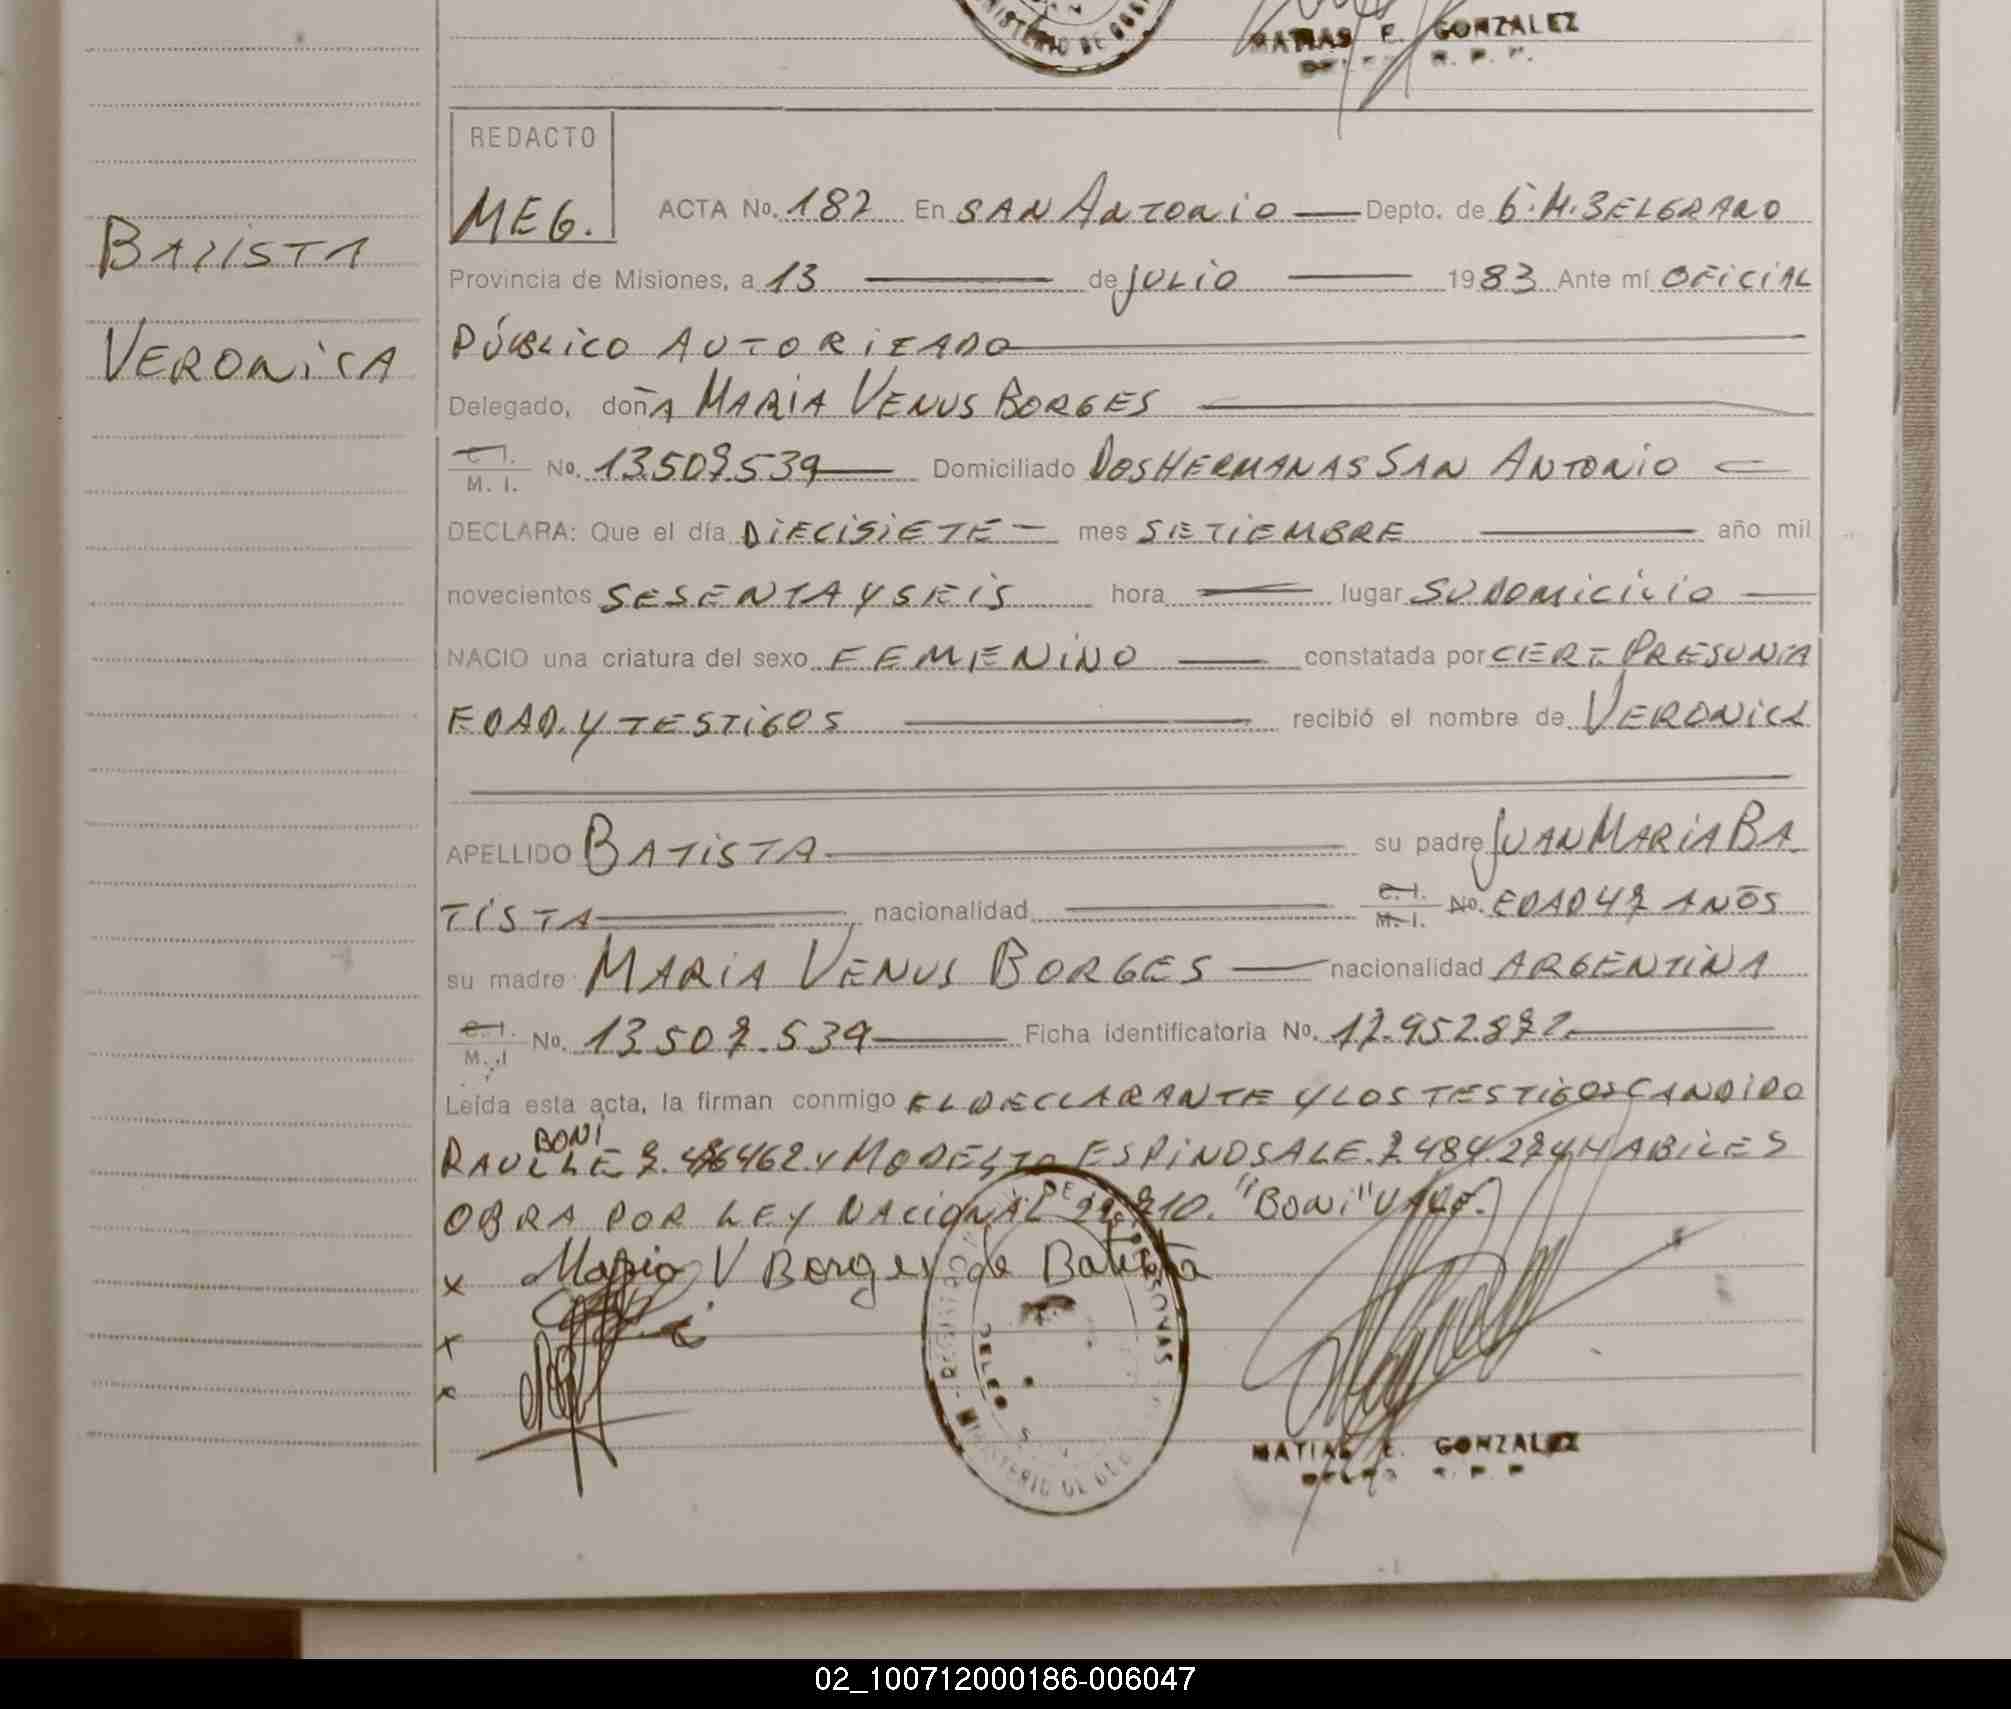 MINISTERIO DE GOB
MATIAS E. GONZALEZ
R. P. P.
REDACTO
MEG.
ACTA No. 182 En SAN ANTONIO Depto. de G. M. BELGRANO
BATISTA
Provincia de Misiones, a 13 de JULIO 1983 Ante mí OFICIAL
PÚBLICO AUTORIZADO
VERONICA
Delegado, doñA MARIA VENUS BORGES
C. I.
M. I. No. 13.507.539 Domiciliado DOS HERMANAS SAN ANTONIO
DECLARA: Que el día DIECISIETE mes SETIEMBRE año mil
novecientos SESENTA Y SEIS hora lugar SU DOMICILIO
NACIO una criatura del sexo FEMENINO constatada por CERT. PRESUNTA
EDAD. Y TESTIGOS recibió el nombre de VERONICA
APELLIDO BATISTA su padre JUAN MARIA BA
TISTA nacionalidad C. I. M. I. No. EDAD 47 AÑOS
su madre MARIA VENUS BORGES nacionalidad ARGENTINA
C. I.
M. I No. 13.507.539 Ficha identificatoria No. 17.952.872
Leída esta acta, la firman conmigo EL DECLARANTE Y LOS TESTIGOS CANDIDO
BONI
RAUL LE 7. 462 Y MODESTO ESPINOSA LE. 7.484.274 HABILES
OBRA POR LEY NACIONAL "BONI" VALE.
x Maria V Borges de Batista
x
x
REGISTRO DE PERSONAS
MINISTERIO DE GOB
MATIAS E. GONZALEZ
R. P. P
02_100712000186-006047